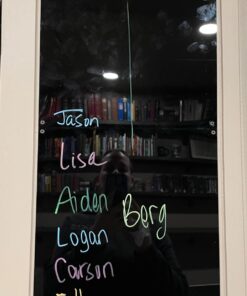 Jason
Lisa
Aiden
Berg
Logan
Carson